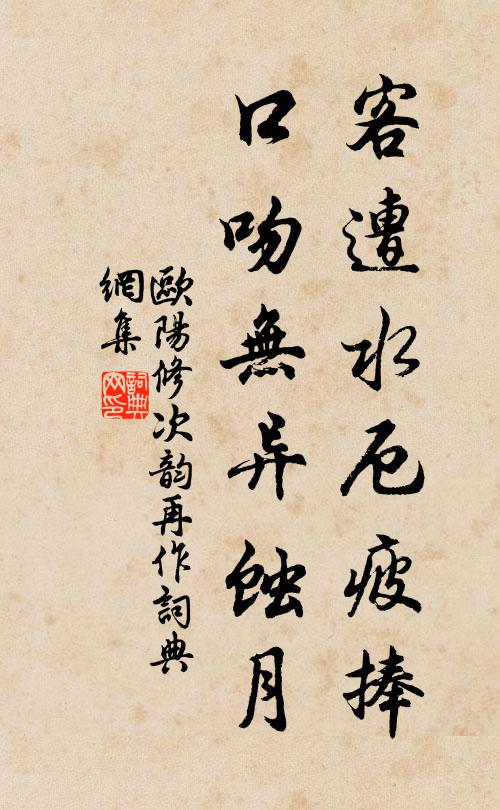 客遭水厄疲捧
口吻無异蝕月
歐陽修次韵再作詞典
網集
詞典
网印